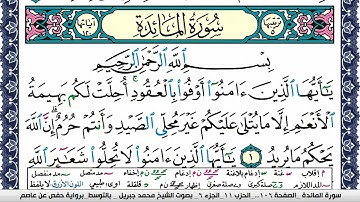 سُورَةُ المَائِدَةِ
بِسْمِ ٱللَّهِ ٱلرَّحْمَٰنِ ٱلرَّحِيمِ
يَٰٓأَيُّهَا ٱلَّذِينَ ءَامَنُوٓا۟ أَوْفُوا۟ بِٱلْعُقُودِ ۚ أُحِلَّتْ لَكُم بَهِيمَةُ
ٱلْأَنْعَٰمِ إِلَّا مَا يُتْلَىٰ عَلَيْكُمْ غَيْرَ مُحِلِّى ٱلصَّيْدِ وَأَنتُمْ حُرُمٌ ۗ إِنَّ ٱللَّهَ
يَحْكُمُ مَا يُرِيدُ ١ يَٰٓأَيُّهَا ٱلَّذِينَ ءَامَنُوا۟ لَا تُحِلُّوا۟ شَعَٰٓئِرَ ٱللَّهِ
سورة المائدة الصفحة ١٠٦ الحزب ١١ الجزء ٦ بصوت الشيخ محمد جبريل - بالتوسط برواية حفص عن عاصم